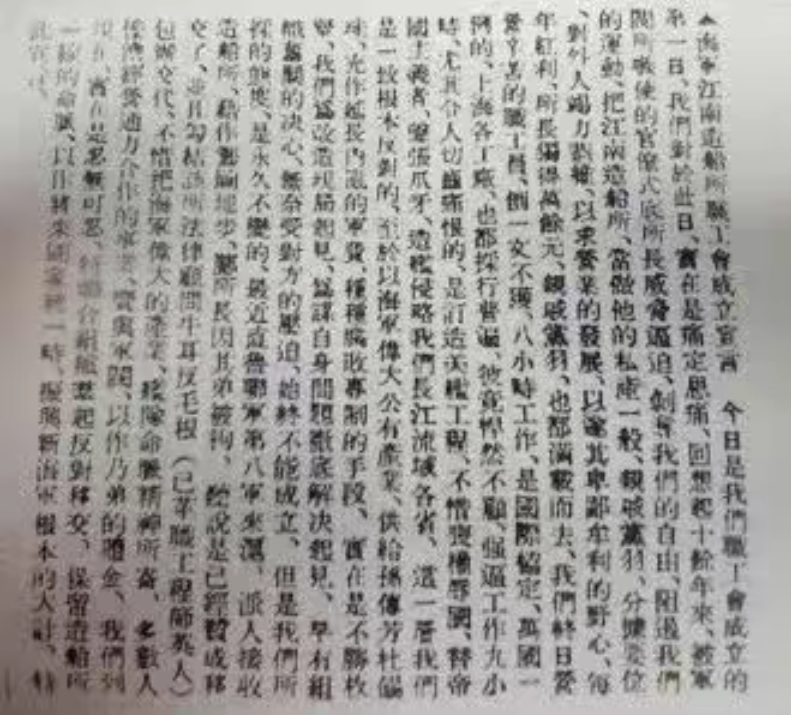 ▲海軍江南造船所職工會成立宣言 今日是我們職工會成立的
第一日、我們對於此日、實在是痛定思痛、回想起十餘年來、被軍
閥所嗾使的官僚式底所長威脅逼迫、剝奪我們的自由、阻遏我們
的運動、把江南造船所、當做他的私產一般、親戚黨羽、分據要位
、對外人竭力 、以求營業的發展、以遂其卑鄙牟利的野心、每
年紅利、所長獨得萬餘元、親戚黨羽、也都滿載而去、我們終日營
營辛苦的職工員、個一文不獲、八小時工作、是國際協定、萬國一
例的、上海各工廠、也都採行普遍、彼竟悍然不顧、強逼工作九小
時、尤其令人切齒痛恨的、是訂造美艦工程、不惜喪權辱國、替帝
國主義者、張爪牙、造艦侵略我們長江流域各省、這一層我們
是一致根本反對的、至於以海軍偉大公有產業、供給孫傳芳杜錫
珪、充作延長內亂的軍費、種種腐敗專制的手段、實在是不勝枚
舉、我們為改造現局起見、為謀自身問題澈底解決起見、早有組
織奮鬥的決心、無奈受對方的壓迫、始終不能成立、但是我們所
採的態度、是永久不變的、最近直魯聯軍第八軍來滬、派人接收
造船所、藉作 地步、鄺所長因其弟被拘、聽說是已經贊成移
交了、並且勾結該所法律顧問牛耳反毛根（已革職工程師英人）
包辦交代、不惜把海軍偉大的產業、艦隊命脈精神所寄、多數人
經營通力合作的事業、賣與軍閥、以作乃弟的贖金、我們到
現在、實在是忍無可忍、 聯合組織羣起反對移交、保留造船所
一線的命脈、以作將來國家統一時、振興新海軍根本的大計、特
此宣言